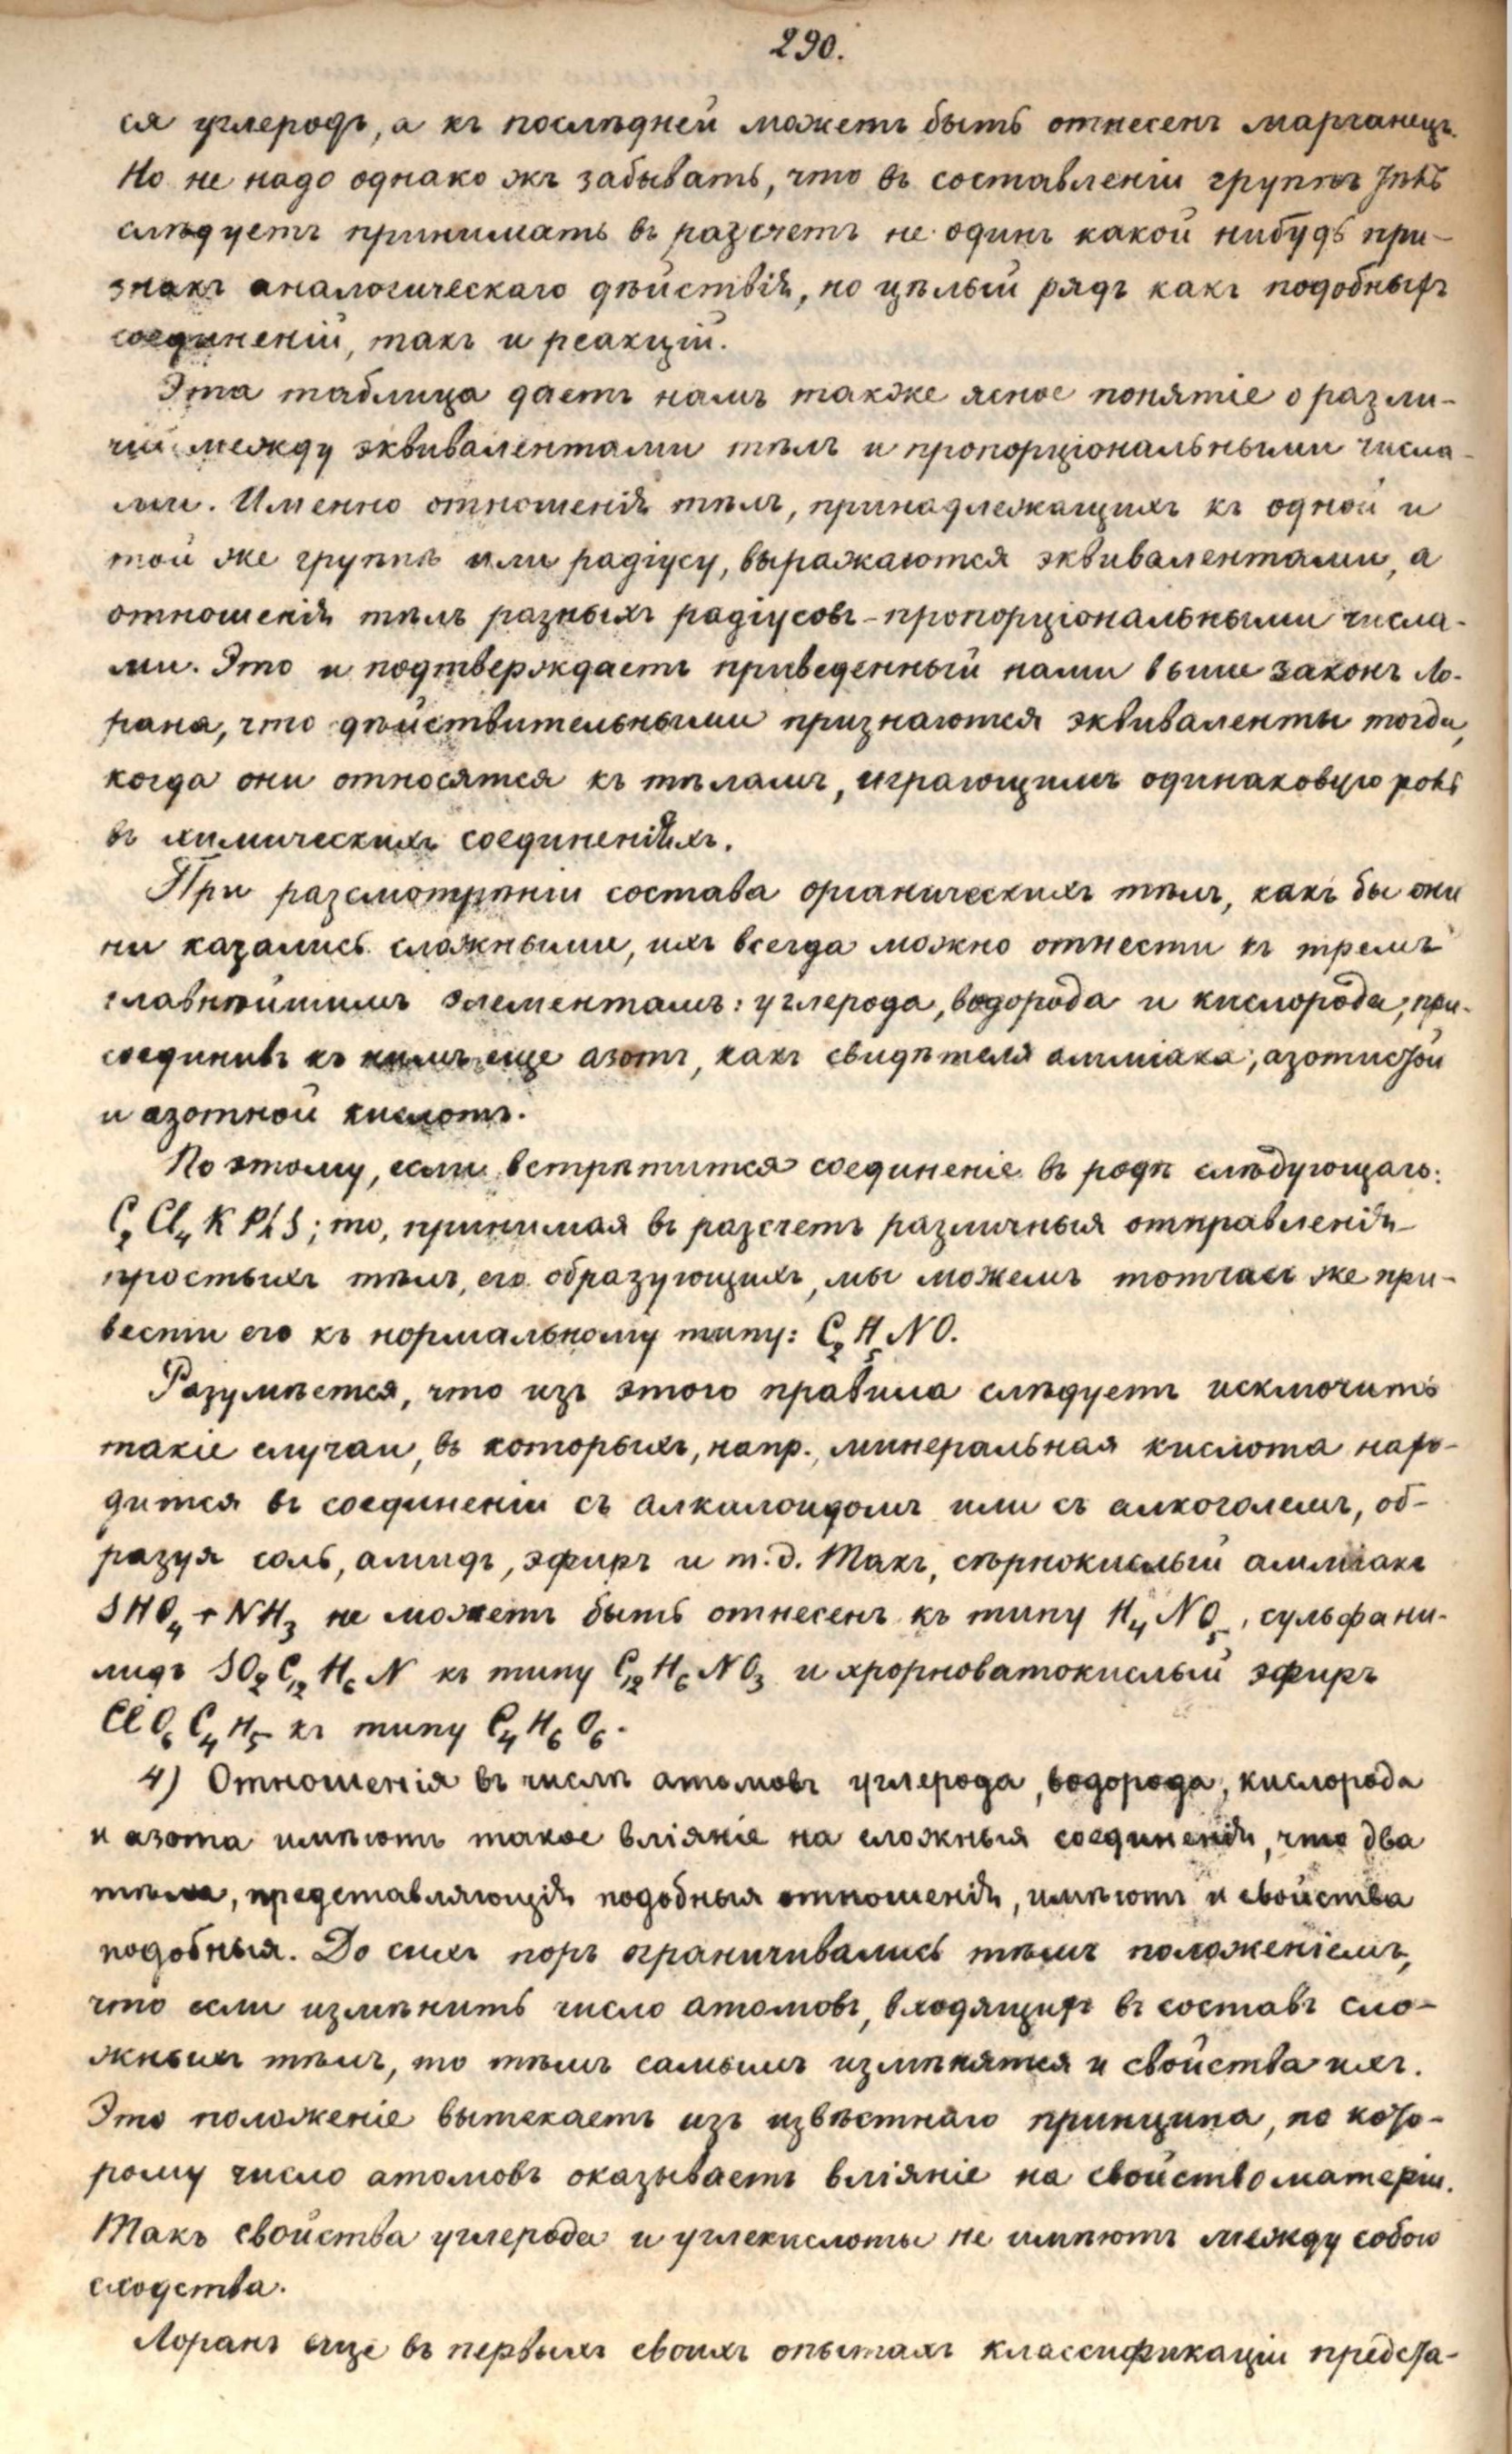 290.
ся углеродъ, а къ послѣдней можетъ быть отнесенъ марганецъ.
Но не надо однако жъ забывать, что въ составленіи группъ
слѣдуетъ принимать въ разсчетъ не одинъ какой нибудь при-
знакъ аналогическаго дѣйствія, но цѣлый рядъ какъ подобныхъ
соединеній, такъ и реакцій.
Эта таблица даетъ намъ также ясное понятіе о разли-
чіи между эквивалентами тѣлъ и пропорціональными числа-
ми. Именно отношенія тѣлъ, принадлежащихъ къ одной и
той же группѣ или радіусу, выражаются эквивалентами, а
отношенія тѣлъ разныхъ радіусовъ – пропорціональными числа-
ми. Это и подтверждаетъ приведенный нами выше законъ Ло-
рана, что дѣйствительными признаются эквиваленты тогда,
когда они относятся къ тѣламъ, играющимъ одинаковую роль
въ химическихъ соединеніяхъ.
При разсмотрѣніи состава органическихъ тѣлъ, какъ бы они
ни казались сложными, ихъ всегда можно отнести къ тремъ
главнѣйшимъ элементамъ: углерода, водорода и кислорода, при-
соединивъ къ нимъ еще азотъ, какъ свидѣтеля амміака, азотистой
и азотной кислотъ.
По этому, если встрѣтится соединеніе въ родѣ слѣдующаго:
C₂Cl₄KPhS; то, принимая въ разсчетъ различныя отправленія
простыхъ тѣлъ, его образующихъ, мы можемъ тотчасъ же при-
вести его къ нормальному типу: C₂H₅NO.
Разумѣется, что изъ этого правила слѣдуетъ исключить
такіе случаи, въ которыхъ, напр., минеральная кислота нахо-
дится въ соединеніи съ алкалоидомъ или съ алкоголемъ, об-
разуя соль, амидъ, эфиръ и т.д. Такъ, сѣрнокислый амміакъ
SHO₄+NH₃ не можетъ быть отнесенъ къ типу H₄NO₅, сульфани-
лидъ SO₂C₁₂H₆N къ типу C₁₂H₆NO₃ и хлорноватокислый эфиръ
ClO₆C₄H₅ къ типу C₄H₆O₆.
4) Отношенія въ числѣ атомовъ углерода, водорода, кислорода
и азота имѣютъ такое вліяніе на сложныя соединенія, что два
тѣла, представляющія подобныя отношенія, имѣютъ и свойства
подобныя. До сихъ поръ ограничивались тѣмъ положеніемъ,
что если измѣнить число атомовъ, входящихъ въ составъ сло-
жныхъ тѣлъ, то тѣмъ самымъ измѣнятся и свойства ихъ.
Это положеніе вытекаетъ изъ извѣстнаго принципа, по кото-
рому число атомовъ оказываетъ вліяніе на свойство матеріи.
Такъ свойства углерода и углекислоты не имѣютъ между собою
сходства.
Лоранъ еще въ первыхъ своихъ опытахъ классификаціи предста-